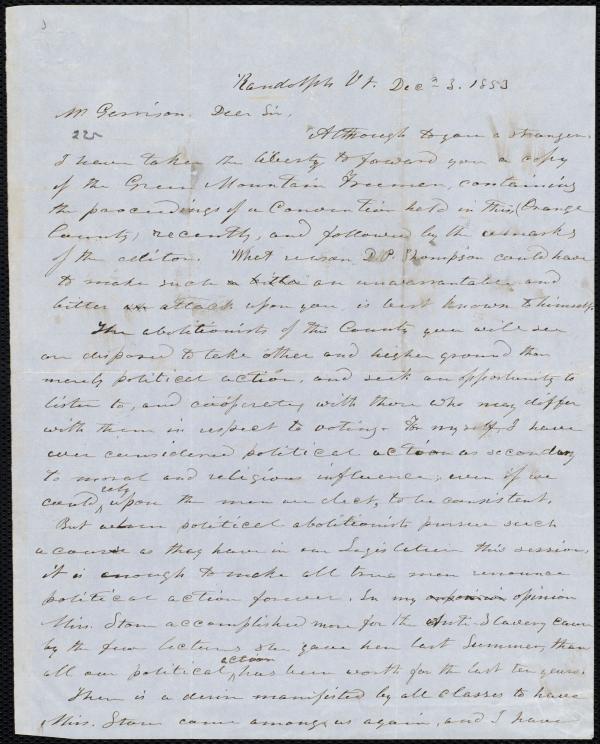 Randolph Vt. Dec. 3. 1853
Mr Garrison. Dear Sir,
225
Although to you a stranger
I have taken the liberty to forward you a copy
of the Green Mountain Freeman, containing
the proceedings of a Convention held in this (Orange
County) recently, and followed by the remarks
of the editor. What reason D. P. Thompson could have
to make such a an unwarrantable and
bitter attack upon you is best known to himself.
The abolitionists of this County you will see
are disposed to take other and higher ground than
merely political action, and seek an opportunity to
listen to, and cooperate, with those who may differ
with them in respect to voting. For myself, I have
ever considered political action as secondary
to moral and religious influence; even if we
could rely upon the men we elect, to be consistent.
But when political abolitionists pursue such
a course as they have in our Legislature this session,
it is enough to make all true men renounce
political action forever. In my opinion
Miss. Stone accomplished more for the Anti-Slavery cause
by the few lectures she gave here last Summer, than
all our political action has been worth for the last ten years.
There is a desire manifested by all classes to have
Miss. Stone come among us again, and I have